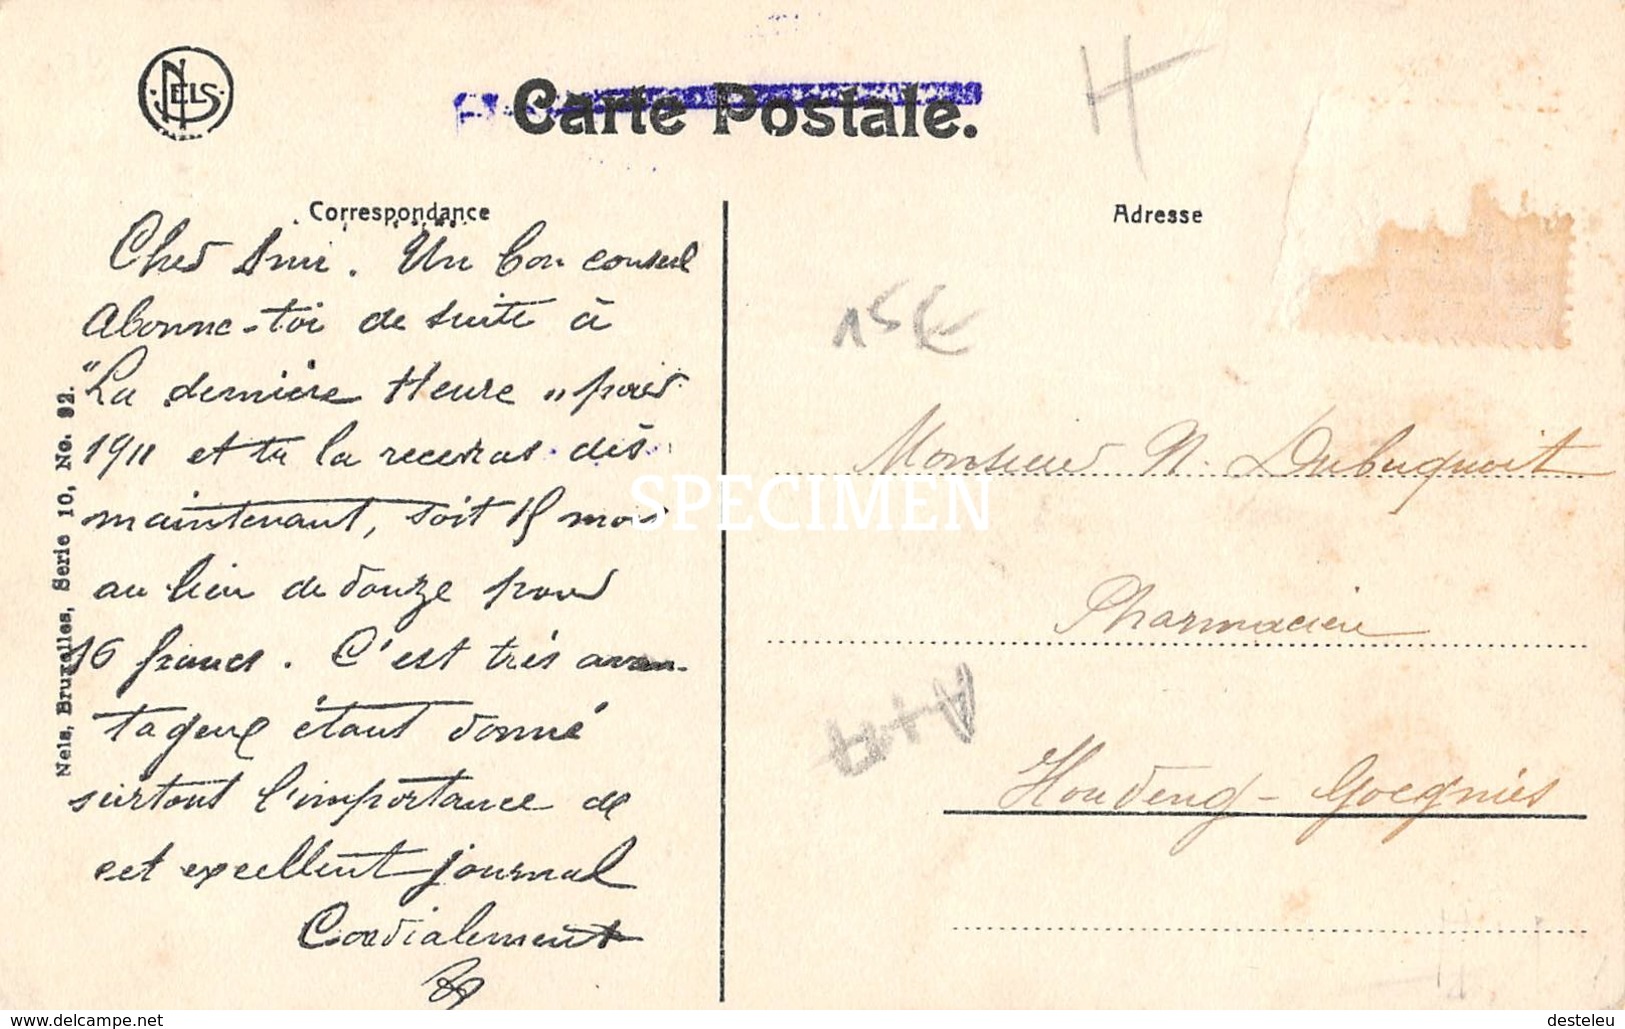 NELS
Carte Postale.
Correspondance
Adresse
Cher Ami. Un bon conseil
Abonne-toi de suite à
"La dernière Heure" pour
1911 et tu la recevras dès
maintenant, soit 15 mois
au lieu de douze pour
16 francs. C'est très avan-
tageux étant donné
surtout l'importance de
cet excellent journal
Cordialement
Nels, Bruxelles, Serie 10, No. 92.
15€
Monsieur N. Dubuquoit
Pharmacien
Houdeng-Goegnies
SPECIMEN
delcampe.net
desteleu